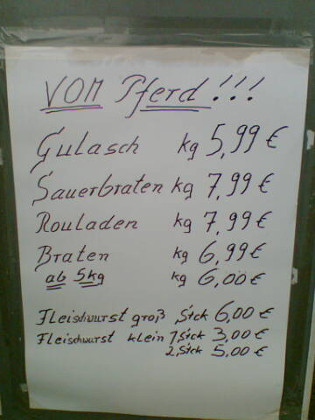 VOM Pferd!!!
Gulasch kg 5,99 €
Sauerbraten kg 7,99 €
Rouladen kg 7,99 €
Braten kg 6,99 €
ab 5kg kg 6,00 €
Fleischwurst groß, Stck 6,00 €
Fleischwurst klein 1,Stck 3,00 €
2,Stck 5,00 €